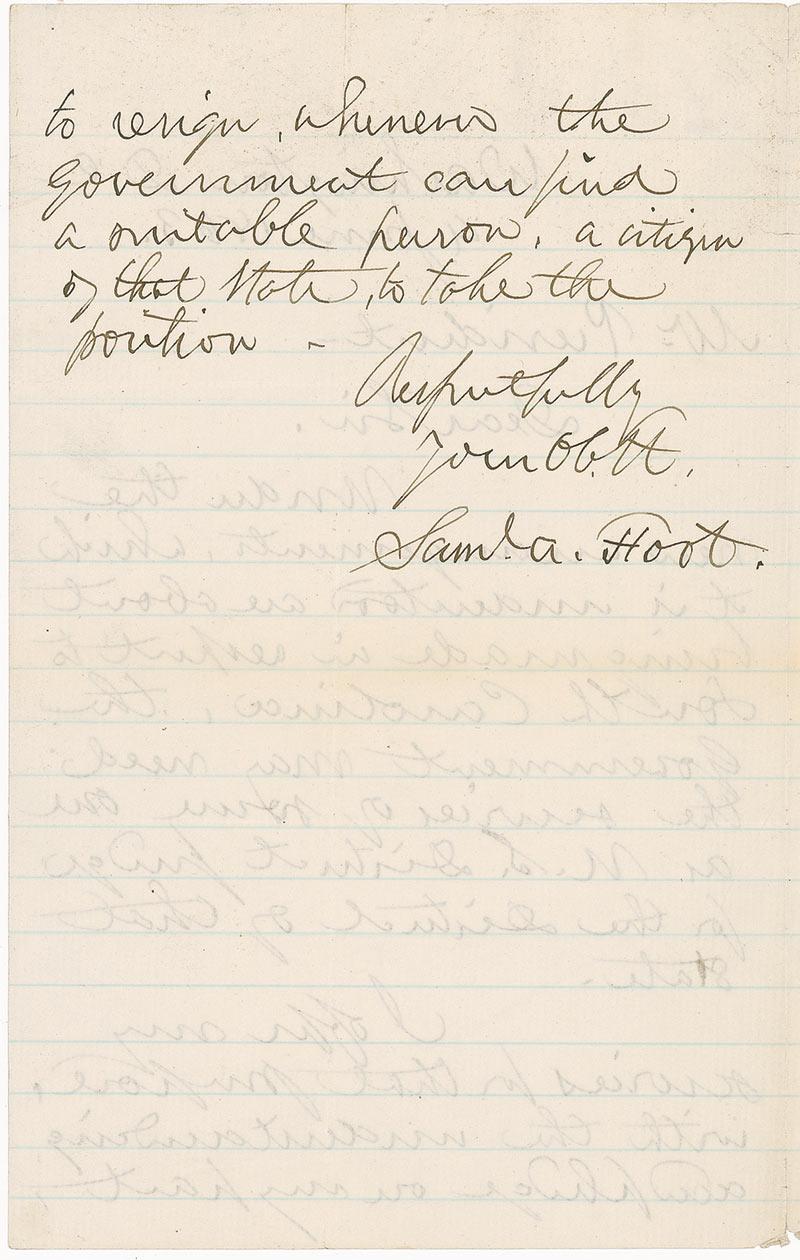 to resign, whenever the
Government can find
a suitable person, a citizen
of that State, to take the
position -
Respectfully
Your Ob. St.
Saml. A. Foot.